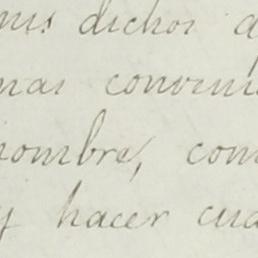 mis dichos a
mas conveni
nombre, com
y hacer cua